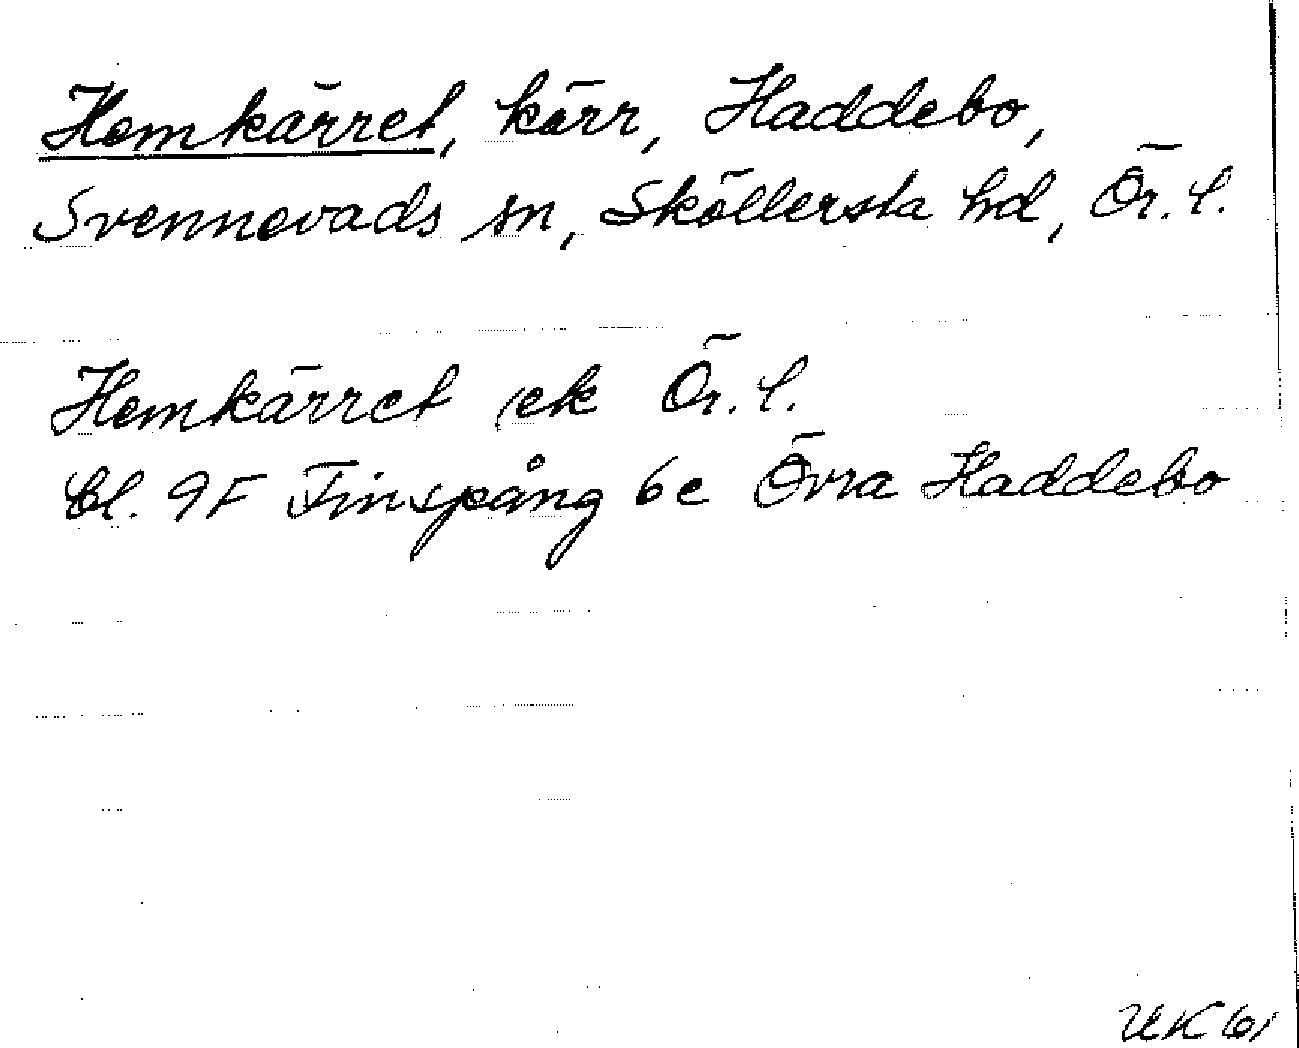 Hemkärret, kärr, Haddebo,
Svennevads sn, Sköllersta hd, Ör. l.
Hemkärret ek Ör. l.
Bl. 9F Finspång 6e Övra Haddebo
UK 61